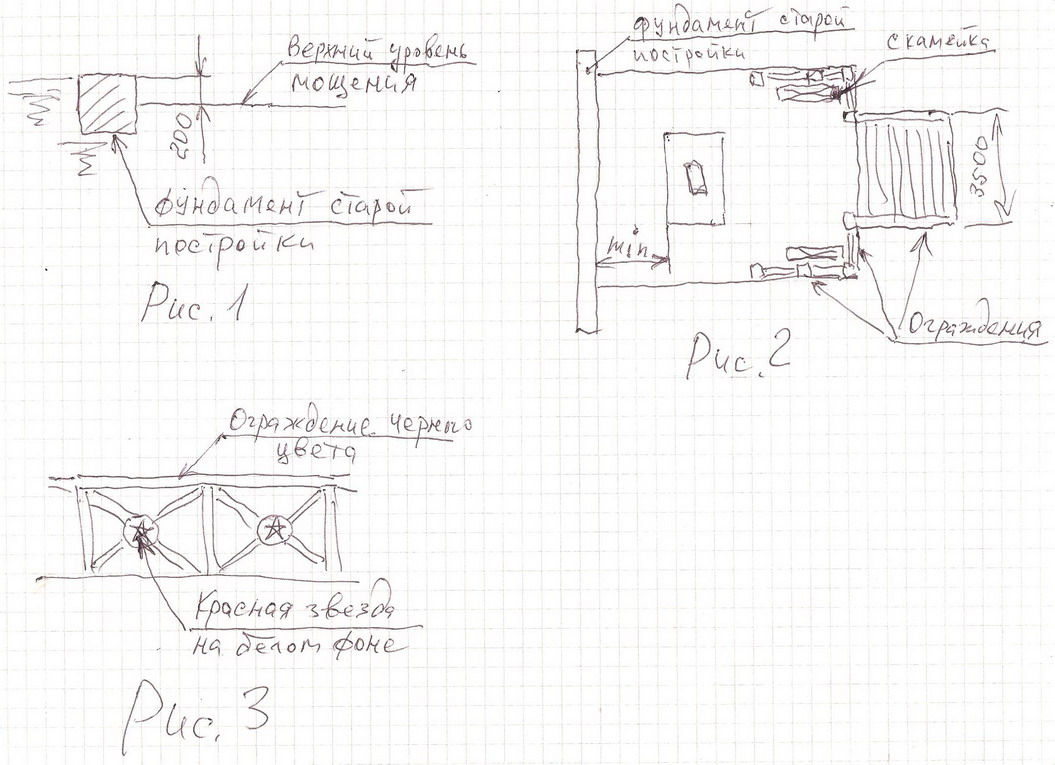 Верхний уровень
мощения
200
фундамент старой
постройки
Рис. 1
фундамент старой
постройки
скамейка
3500
min
Ограждения
Рис. 2
Ограждение черного
цвета
Красная звезда
на белом фоне
Рис. 3